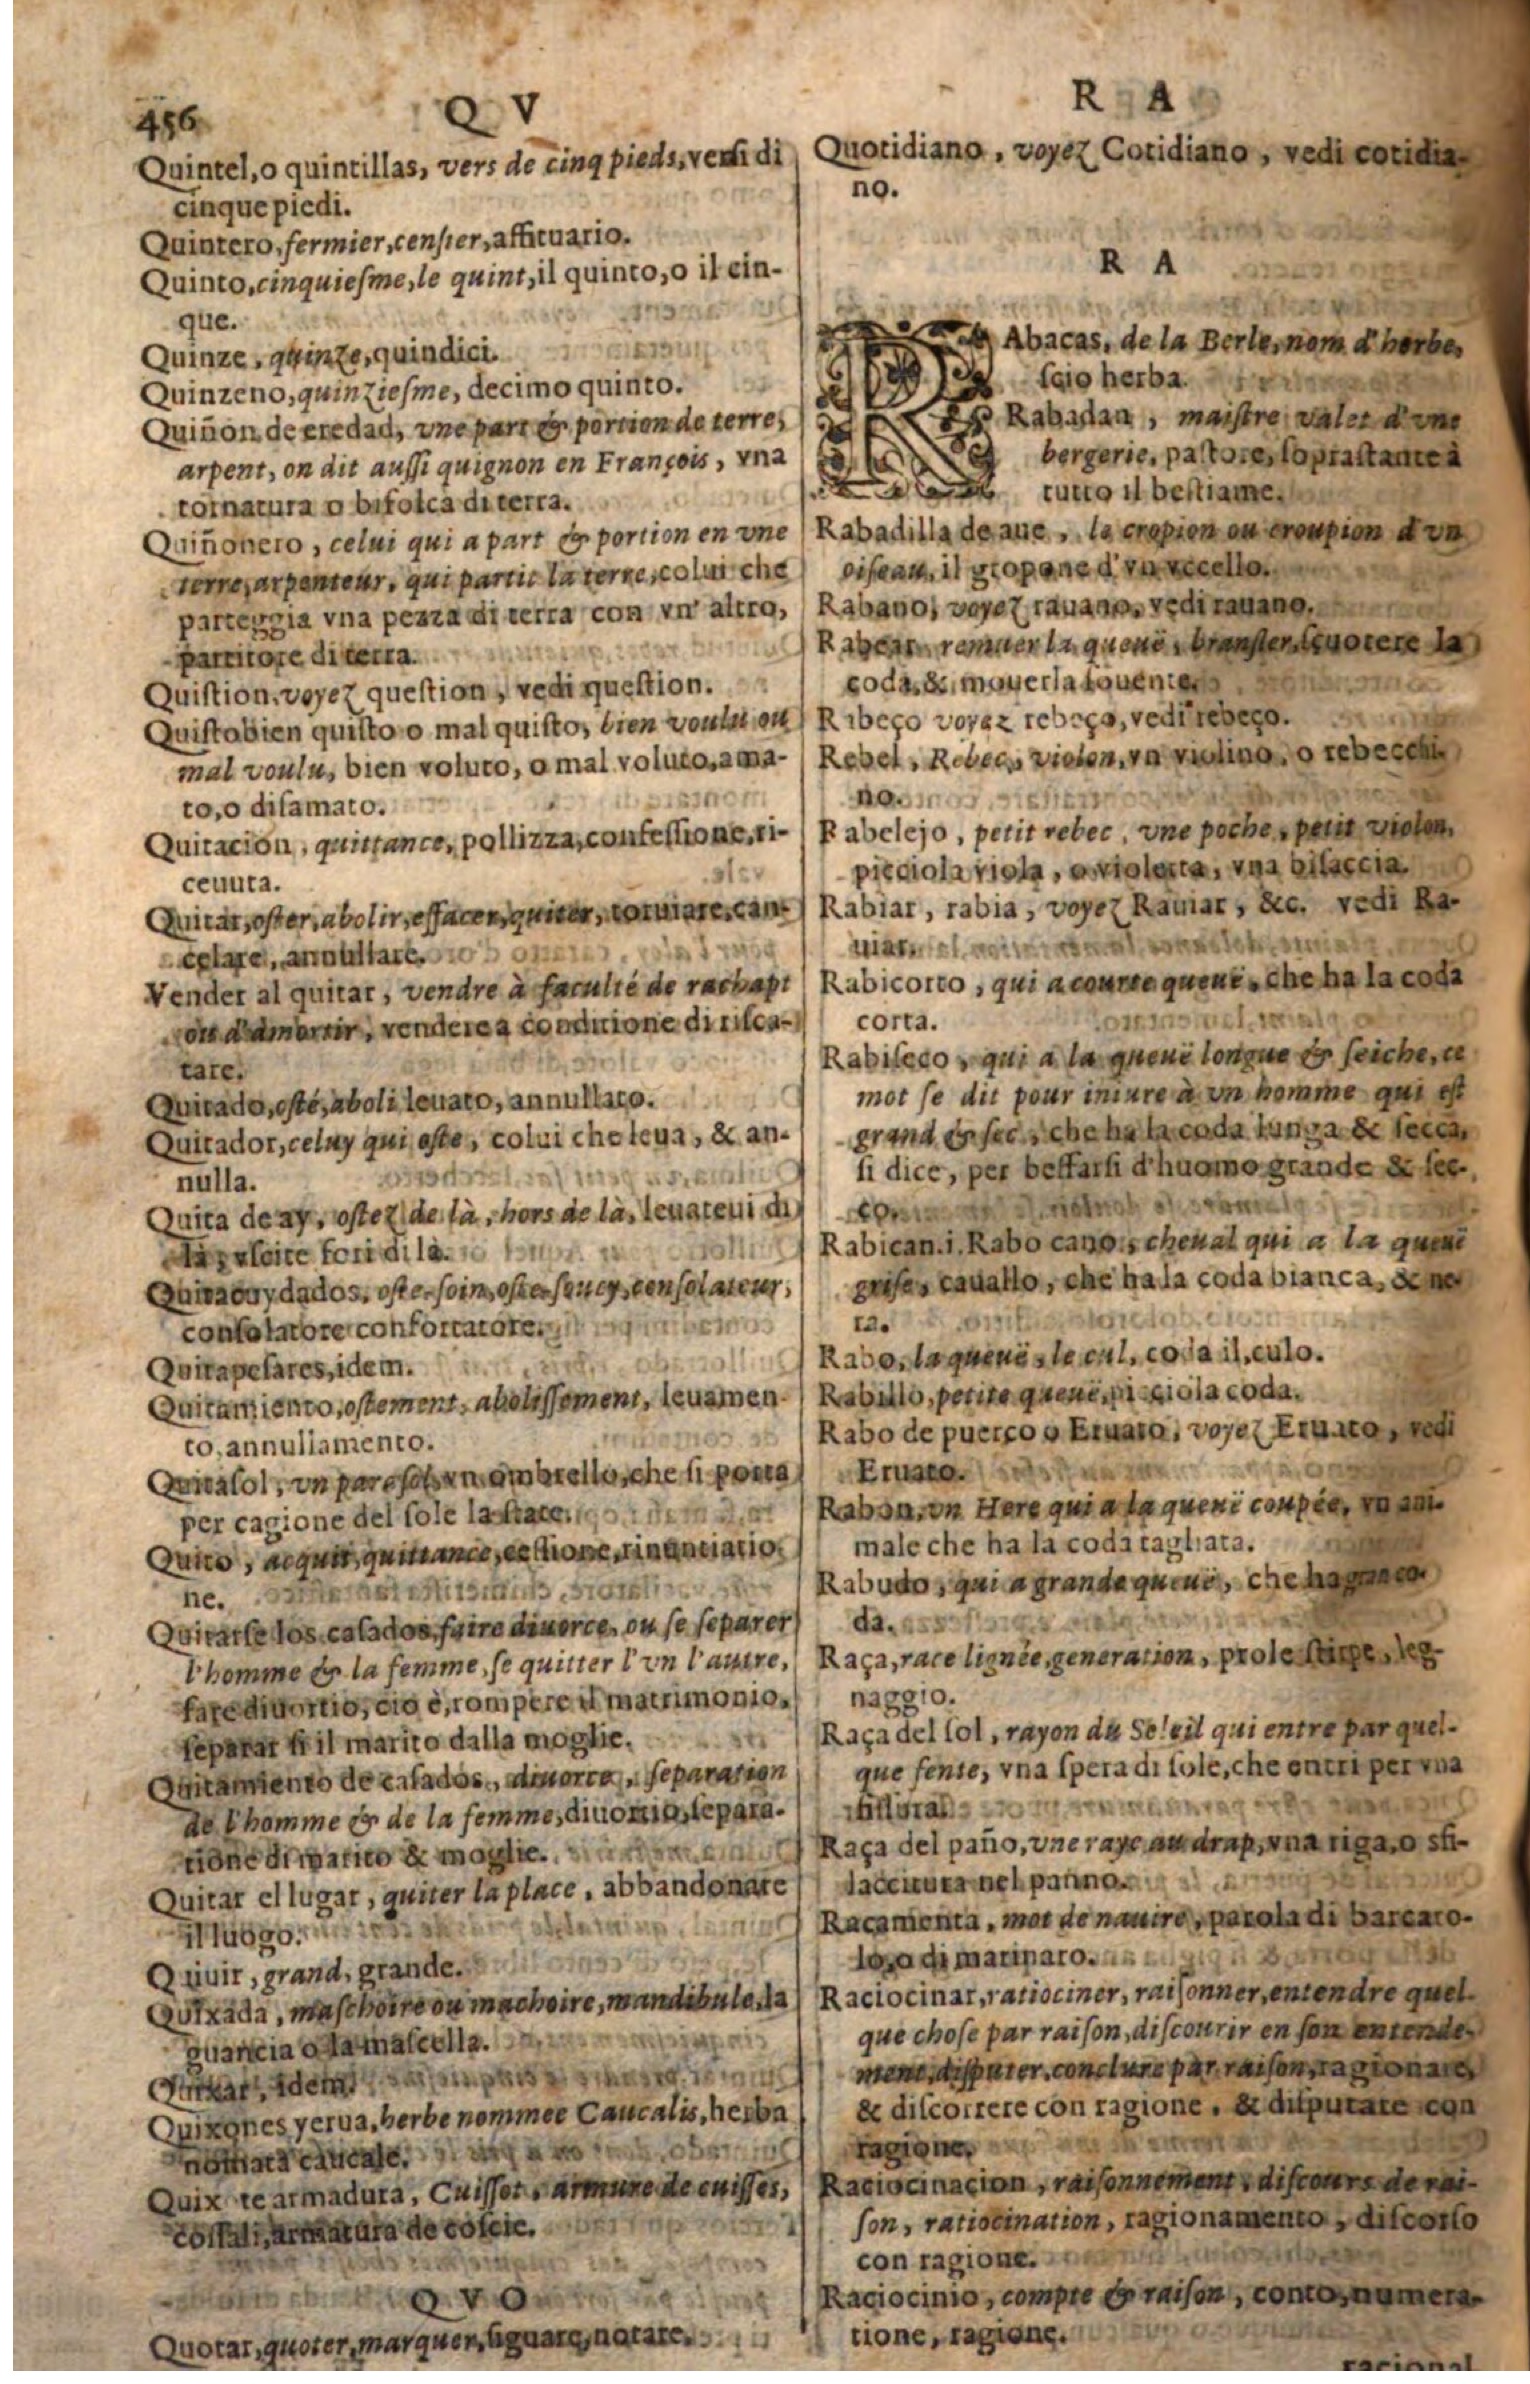 456
Q V
Quintel, o quintillas, vers de cinq pieds, versi di
cinque piedi.
Quintero, fermier, censier, affituario.
Quinto, cinquiesme, le quint, il quinto, o il cin-
que.
Quinze, quinze, quindici.
Quinzeno, quinziesme, decimo quinto.
Quiñon de eredad, vne part & portion de terre,
arpent, on dit aussi quignon en François, vna
tornatura o bifolca di terra.
Quiñonero, celui qui a part & portion en vne
terre, arpenteur, qui partit la terre, colui che
parteggia vna pezza di terra con vn' altro,
partitore di terra.
Quistion, voyez question, vedi question.
Quisto bien quisto o mal quisto, bien voulu ou
mal voulu, bien voluto, o mal voluto, ama-
to, o disamato.
Quitacion, quittance, pollizza, confessione, ri-
ceuuta.
Quitar, oster, abolir, effacer, quiter, can-
celare, annullare.
Vender al quitar, vendre à faculté de rachapt
ou d'amortir, vendere a conditione di risca-
tare.
Quitado, osté, aboli leuato, annullato.
Quitador, celuy qui oste, colui che leua, & an-
nulla.
Quita de ay, ostez de là, hors de là, leuateui di
là, vscite fori di là.
Quitacuydados, oste-soin, oste-soucy, consolateur,
consolatore confortatore.
Quitapesares, idem.
Quitamiento, ostement, abolissement, leuamen-
to, annullamento.
Quitasol, vn parasol, vn ombrello, che si porta
per cagione del sole la state.
Quito, acquit, quittance, cessione, rinuntiatio-
ne.
Quitarse los casados, faire diuorce, ou se separer
l'homme & la femme, se quitter l'vn l'autre,
fare diuortio, cio è, rompere il matrimonio,
separar si il marito dalla moglie.
Quitamiento de casados, diuorce, separation
de l'homme & de la femme, diuortio, separa-
tione di marito & moglie.
Quitar el lugar, quiter la place, abbandonare
il luogo.
Quiuir, grand, grande.
Quixada, maschoire ou machoire, mandibule, la
guancia o la mascella.
Quixar, idem.
Quixones yerua, herbe nommee Caucalis, herba
nomata caucale.
Quix te armadura, Cuissot, armure de cuisses,
cossali, armatura de coscie.
Q V O
Quotar, quoter, marquer, signare, notare.
R A
Quotidiano, voyez Cotidiano, vedi cotidia-
no.
R A
RAbacas, de la Berle, nom d'herbe,
scio herba.
Rabadan, maistre valet d'vne
bergerie, pastore, soprastante à
tutto il bestiame.
Rabadilla de aue, le cropion ou croupion d'vn
oiseau, il gropone d'vn vccello.
Rabano, voyez rauano, vedi rauano.
Rabear, remuer la queuë, bransler, scuotere la
coda, & mouerla souente.
Rabeço voyez rebeço, vedi rebeço.
Rebel, Rebec, violon, vn violino, o rebecchi-
no.
Rabelejo, petit rebec, vne poche, petit violon,
picciola viola, o violetta, vna bisaccia.
Rabiar, rabia, voyez Rauiar, &c. vedi Ra-
uiar.
Rabicorto, qui a courte queuë, che ha la coda
corta.
Rabiseco, qui a la queuë longue & seiche, ce
mot se dit pour iniure à vn homme qui est
grand & sec, che ha la coda lunga & secca,
si dice, per beffarsi d'huomo grande & sec-
co.
Rabican.i. Rabo cano, cheual qui a la queuë
grise, cauallo, che ha la coda bianca, & ne-
ra.
Rabo, la queuë, le cul, coda il, culo.
Rabillo, petite queuë, picciola coda.
Rabo de puerco o Eruato, voyez Eruato, vedi
Eruato.
Rabon, vn Here qui a la queuë coupée, vn ani-
male che ha la coda tagliata.
Rabudo, qui a grande queuë, che ha gran co-
da.
Raça, race lignée, generation, prole stirpe, leg-
naggio.
Raça del sol, rayon du Soleil qui entre par quel-
que fente, vna spera di sole, che entri per vna
fissura.
Raça del paño, vne raye au drap, vna riga, o sfi-
laccitura nel panno.
Racamenta, mot de nauire, parola di barcaro-
lo, o di marinaro.
Raciocinar, ratiociner, raisonner, entendre quel-
que chose par raison, discourir en son entende-
ment, disputer, conclure par raison, ragionare,
& discorrere con ragione, & disputare con
ragione.
Raciocinacion, raisonnement, discours de rai-
son, ratiocination, ragionamento, discorso
con ragione.
Raciocinio, compte & raison, conto, numera-
tione, ragione.
racional